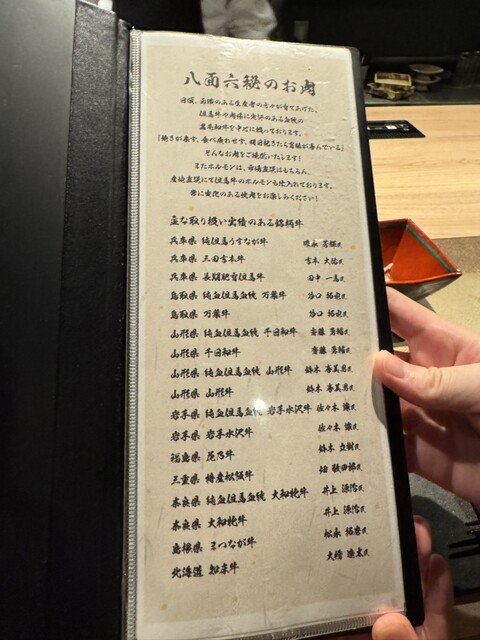 八面六秘のお肉
日頃、面識のある生産者の方々が育てあげた、
但馬牛や肉味に定評のある血統の
黒毛和牛を中心に扱っております。
「飽きが来ず、食べ疲れせず、翌日起きたら胃腸が喜んでいる」
そんなお肉をご提供いたします!
またホルモンは、市場直送はもちろん、
産崎直送にて但馬牛のホルモンも仕入れております。
常に変化のある焼肉をお楽しみください!
主な取り扱い実績のある銘柄牛
兵庫県 純但馬うすなが牛
兵庫県 三田吉本牛 吉本 大佑氏
兵庫県 長期肥育但馬牛 田中 一馬氏
鳥取県 純血但馬血統 万葉牛 谷口 拓也氏
鳥取県 万葉牛 谷口 拓也氏
山形県 純血但馬血統 千日和牛 齋藤 勇輔氏
山形県 千日和牛 齋藤 勇輔氏
山形県 純血但馬血統 山形牛 鈴木 喜美男氏
山形県 山形牛 鈴木 喜美男氏
岩手県 純血但馬血統 岩手水沢牛 佐々木 譲氏
岩手県 岩手水沢牛 佐々木 譲氏
福島県 花乃牛 鈴木 立樹氏
三重県 特産松阪牛 畑 敬四郎氏
奈良県 純血但馬血統 大和純牛 井上 源治氏
奈良県 大和純牛 井上 源治氏
島根県 まつなが牛 松永 拓磨氏
北海道